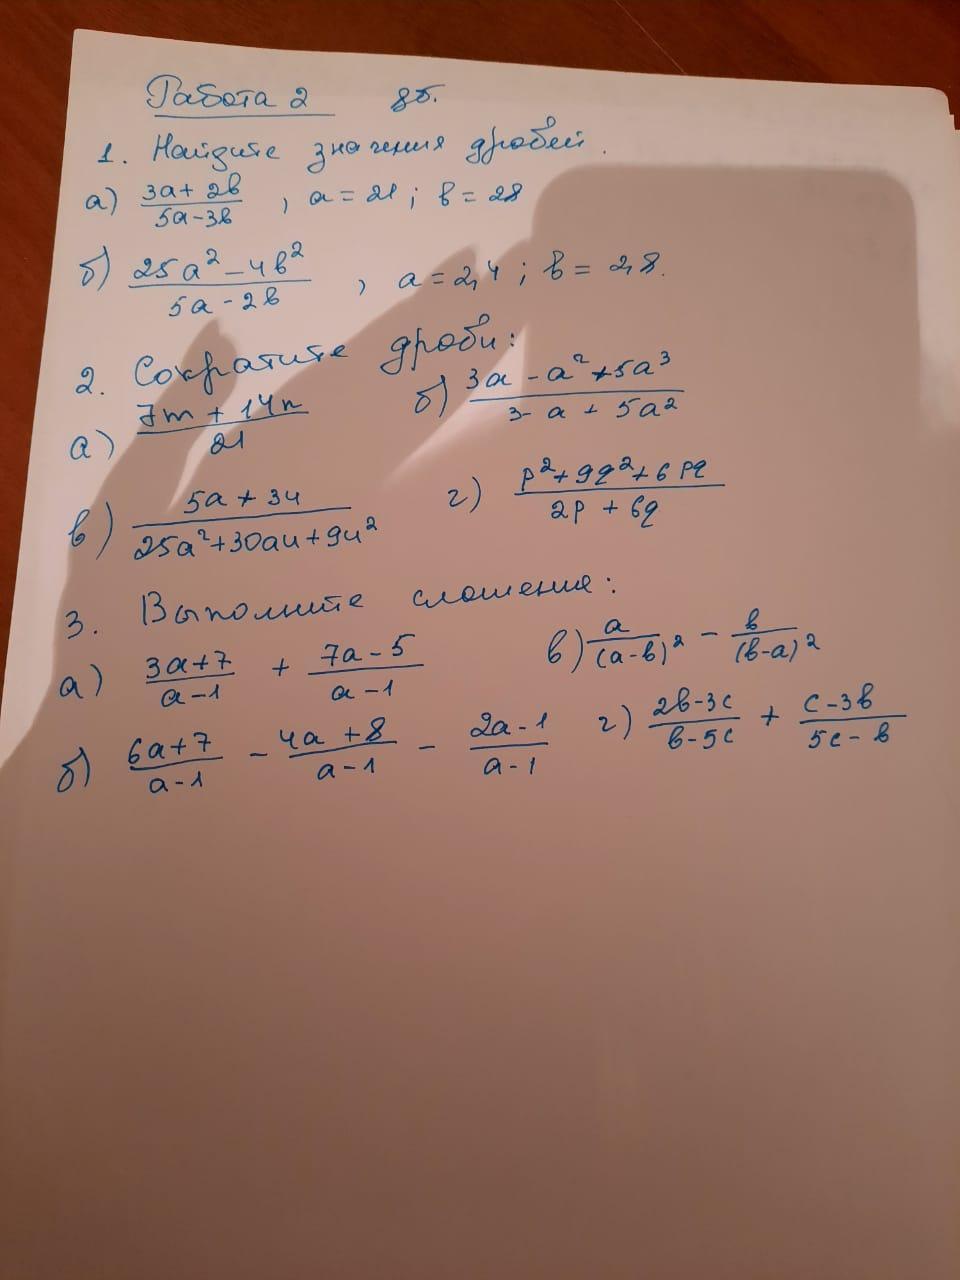 Работа 2 8б.
1. Найдите значения дробей.
а) (3a + 2b)/(5a - 3b), a = 21; b = 28
б) (25a² - 4b²)/(5a - 2b), a = 2,4; b = 2,8.
2. Сократите дроби:
а) (7m + 14n)/21 б) (3a - a² + 5a³)/(3 - a + 5a²)
в) (5a + 3u)/(25a² + 30au + 9u²) г) (p² + 9q² + 6pq)/(2p + 6q)
3. Выполните сложение:
а) (3a + 7)/(a - 1) + (7a - 5)/(a - 1) в) a/(a - b)² - b/(b - a)²
б) (6a + 7)/(a - 1) - (4a + 8)/(a - 1) - (2a - 1)/(a - 1) г) (2b - 3c)/(b - 5c) + (c - 3b)/(5c - b)